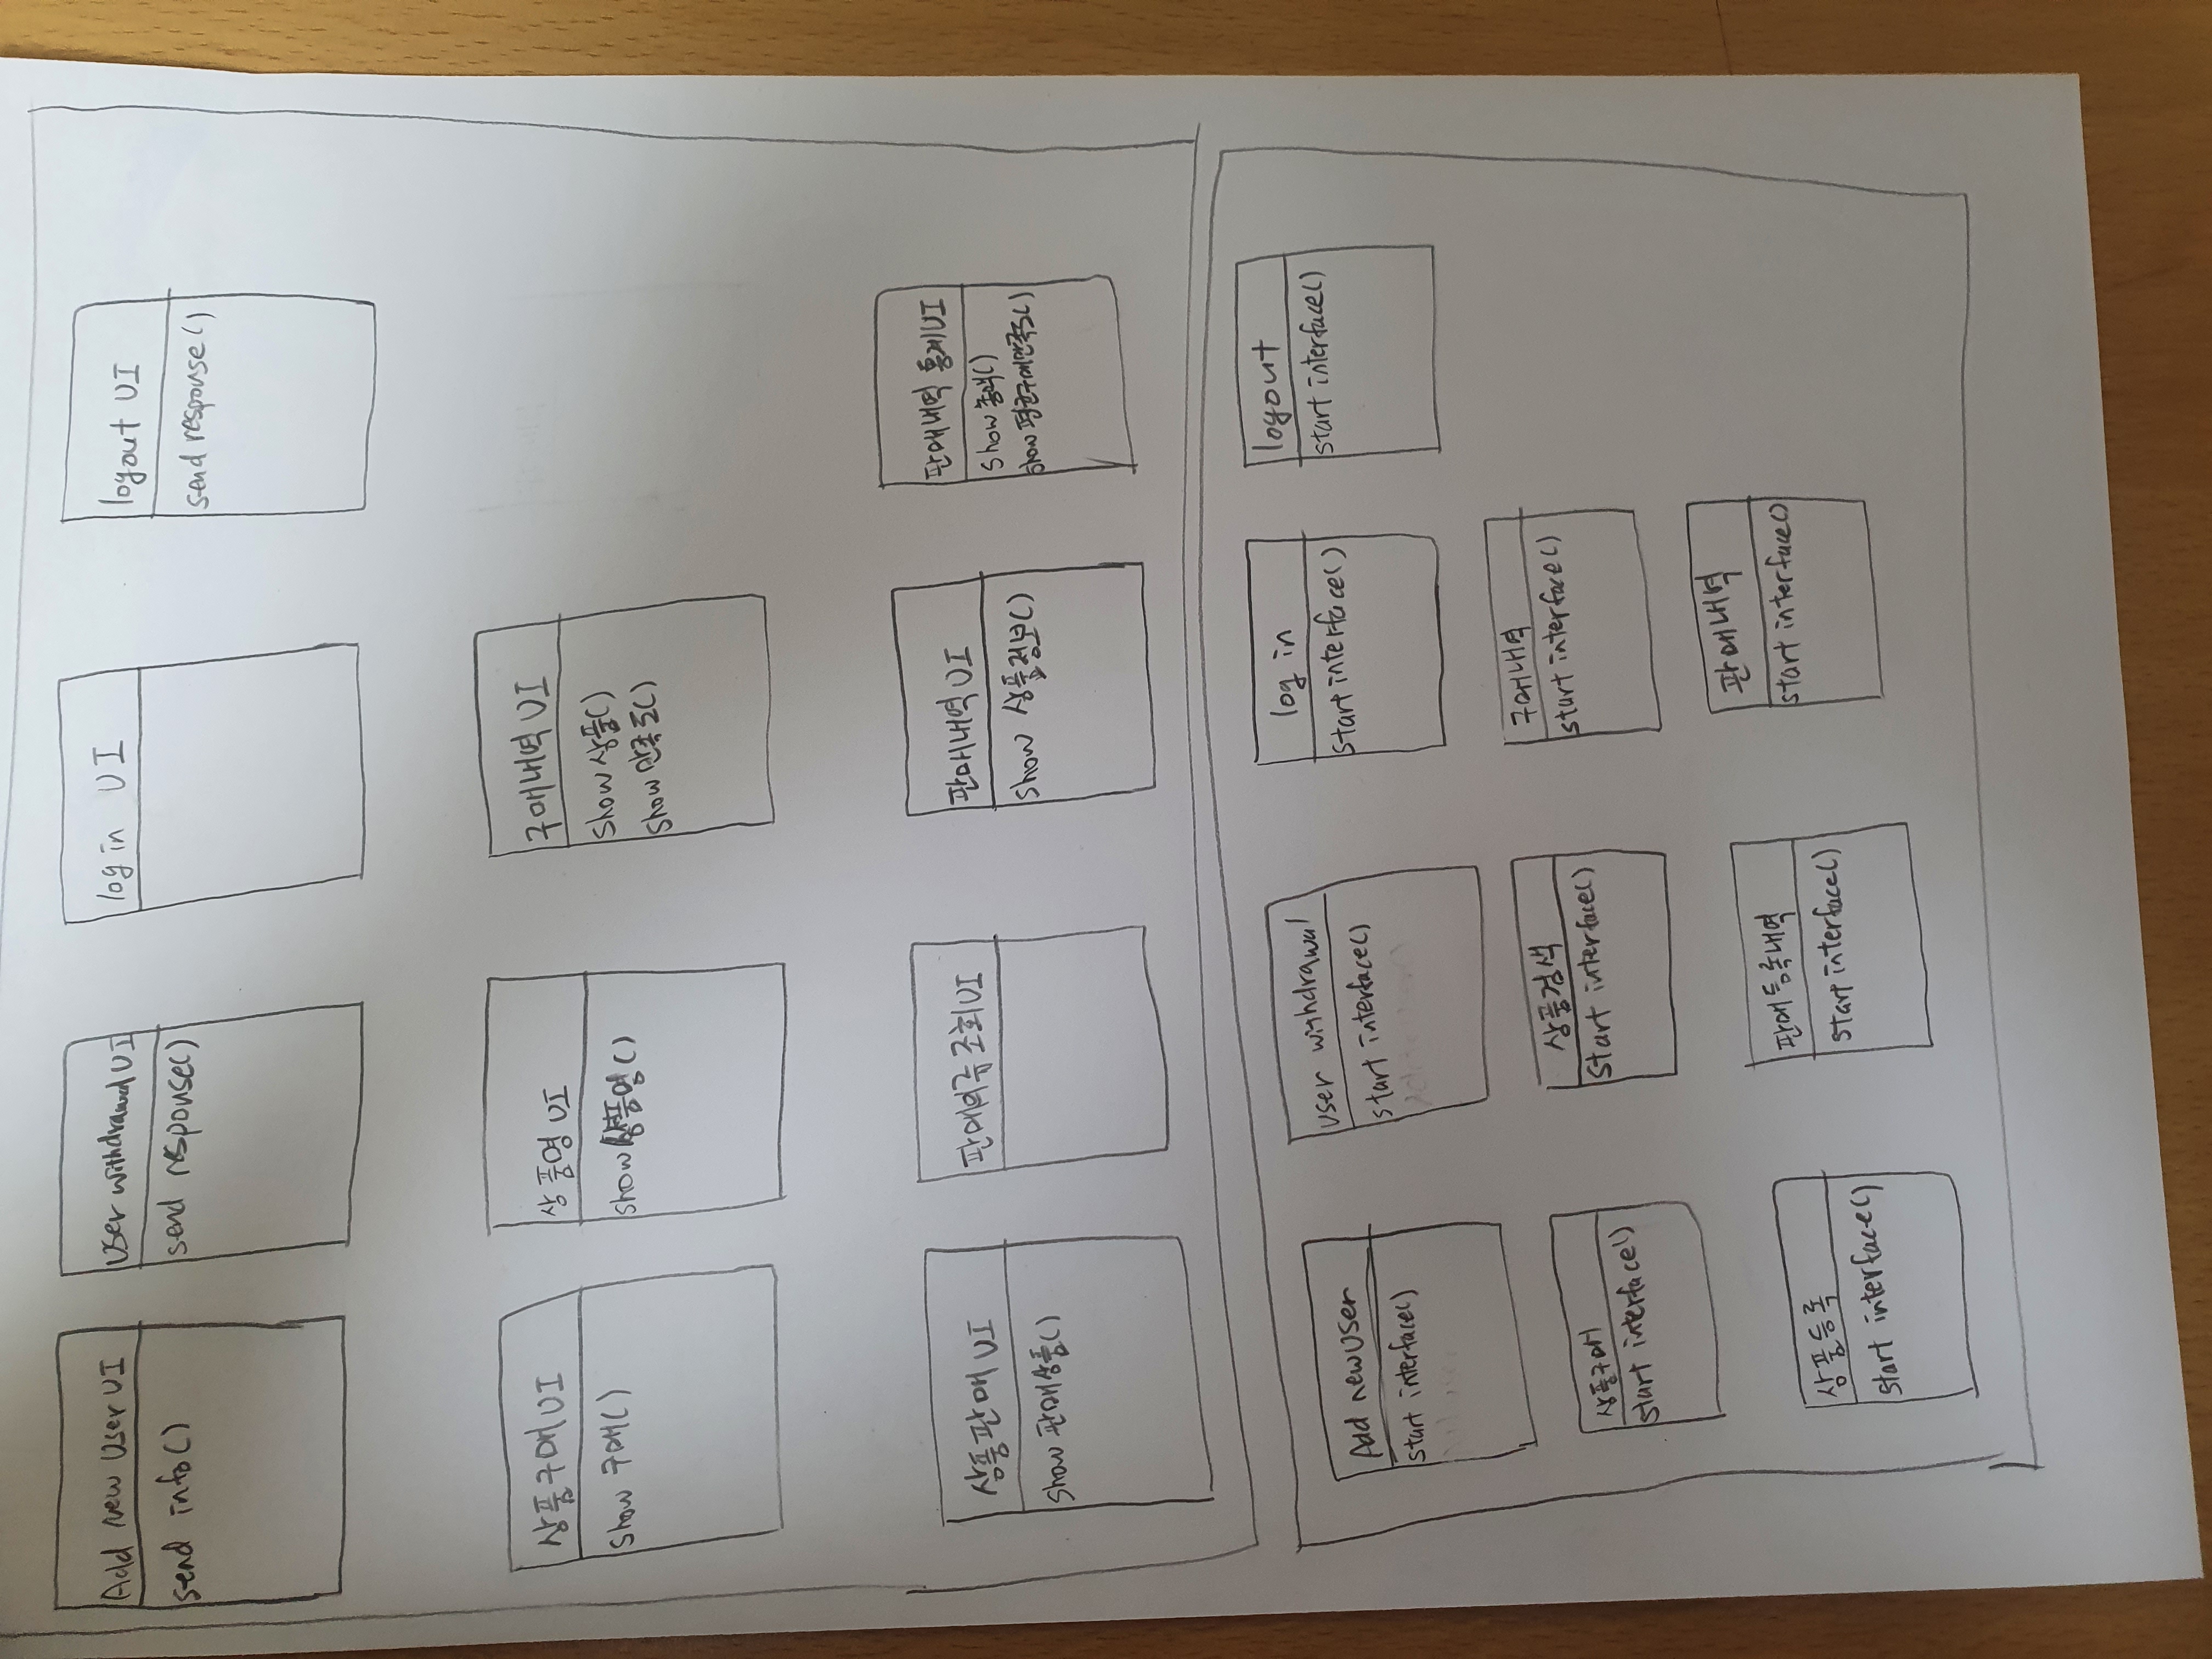 Add new User UI
send info()
User withdrawal UI
send response()
log in UI
logout UI
send response()
상품구매 UI
show 구매()
상품명 UI
show 상품명()
구매내역 UI
show 상품()
show 만족도()
상품판매 UI
show 판매상품()
판매의류 조회 UI
판매내역 UI
show 상품정보()
판매내역 통계 UI
show 총액()
show 평균구매만족도()
Add new User
start interface()
user withdrawal
start interface()
log in
start interface()
logout
start interface()
상품구매
start interface()
상품검색
start interface()
구매내역
start interface()
상품등록
start interface()
판매등록내역
start interface()
판매내역
start interface()